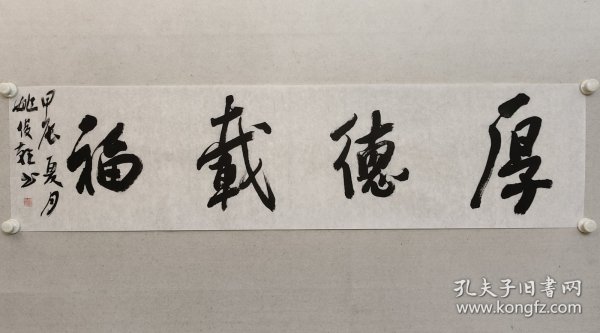 厚德載福
甲辰夏月
姚俊乾书
孔夫子旧书网
www.kongfz.com